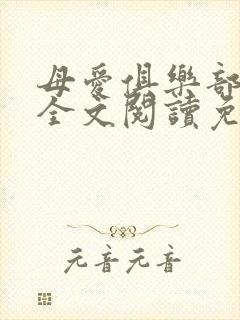 母愛俱樂部
全文閱讀免
元音元音